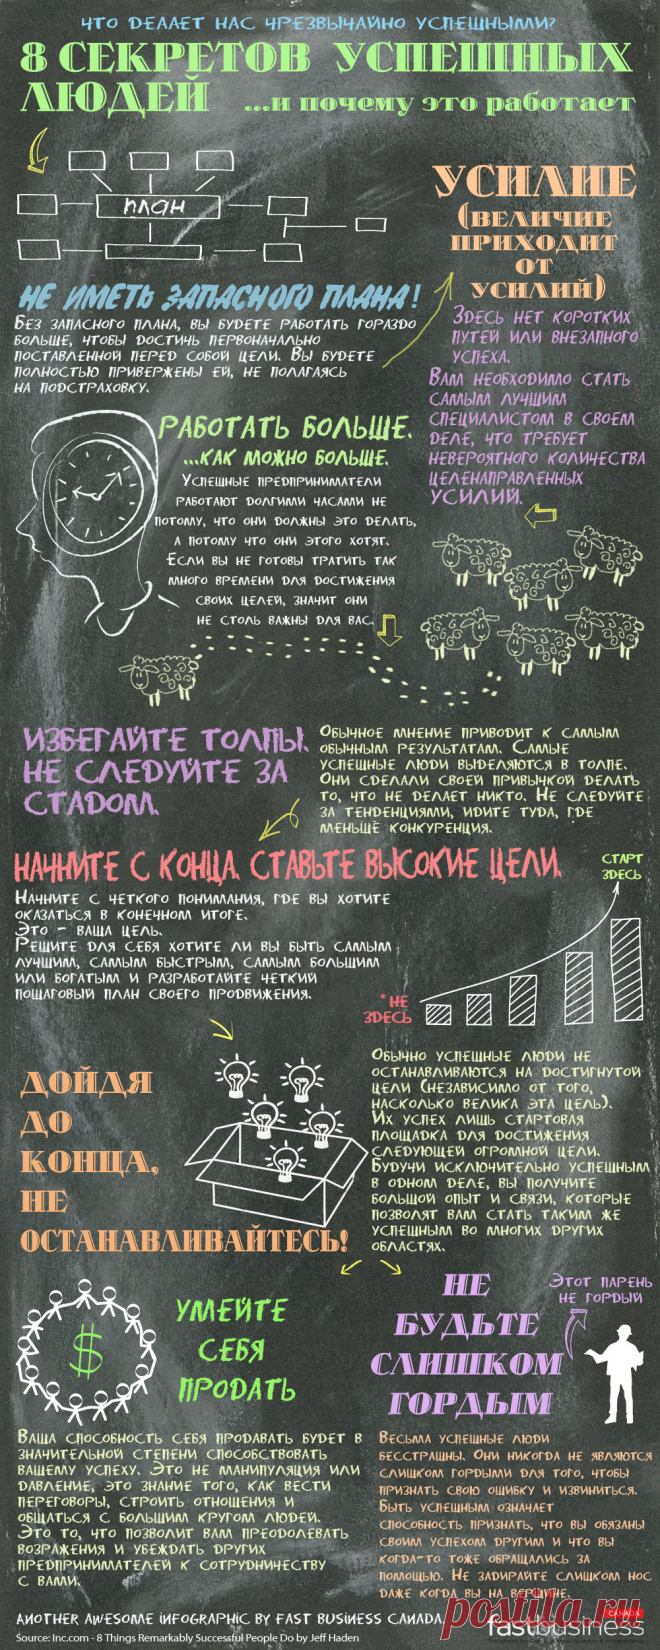 ЧТО ДЕЛАЕТ НАС ЧРЕЗВЫЧАЙНО УСПЕШНЫМИ?
8 СЕКРЕТОВ УСПЕШНЫХ
ЛЮДЕЙ ...и почему это работает
ПЛАН
НЕ ИМЕТЬ ЗАПАСНОГО ПЛАНА!
БЕЗ ЗАПАСНОГО ПЛАНА, ВЫ БУДЕТЕ РАБОТАТЬ ГОРАЗДО
БОЛЬШЕ, ЧТОБЫ ДОСТИЧЬ ПЕРВОНАЧАЛЬНО
ПОСТАВЛЕННОЙ ПЕРЕД СОБОЙ ЦЕЛИ. ВЫ БУДЕТЕ
ПОЛНОСТЬЮ ПРИВЕРЖЕНЫ ЕЙ, НЕ ПОЛАГАЯСЬ
НА ПОДСТРАХОВКУ.
УСИЛИЕ
(ВЕЛИЧИЕ
ПРИХОДИТ
ОТ
УСИЛИЙ)
ЗДЕСЬ НЕТ КОРОТКИХ
ПУТЕЙ ИЛИ ВНЕЗАПНОГО
УСПЕХА.
ВАМ НЕОБХОДИМО СТАТЬ
САМЫМ ЛУЧШИМ
СПЕЦИАЛИСТОМ В СВОЕМ
ДЕЛЕ, ЧТО ТРЕБУЕТ
НЕВЕРОЯТНОГО КОЛИЧЕСТВА
ЦЕЛЕНАПРАВЛЕННЫХ
УСИЛИЙ.
РАБОТАТЬ БОЛЬШЕ.
...КАК МОЖНО БОЛЬШЕ.
УСПЕШНЫЕ ПРЕДПРИНИМАТЕЛИ
РАБОТАЮТ ДОЛГИМИ ЧАСАМИ НЕ
ПОТОМУ, ЧТО ОНИ ДОЛЖНЫ ЭТО ДЕЛАТЬ,
А ПОТОМУ ЧТО ОНИ ЭТОГО ХОТЯТ.
ЕСЛИ ВЫ НЕ ГОТОВЫ ТРАТИТЬ ТАК
МНОГО ВРЕМЕНИ ДЛЯ ДОСТИЖЕНИЯ
СВОИХ ЦЕЛЕЙ, ЗНАЧИТ ОНИ
НЕ СТОЛЬ ВАЖНЫ ДЛЯ ВАС.
ИЗБЕГАЙТЕ ТОЛПЫ.
НЕ СЛЕДУЙТЕ ЗА
СТАДОМ.
ОБЫЧНОЕ МНЕНИЕ ПРИВОДИТ К САМЫМ
ОБЫЧНЫМ РЕЗУЛЬТАТАМ. САМЫЕ
УСПЕШНЫЕ ЛЮДИ ВЫДЕЛЯЮТСЯ В ТОЛПЕ.
ОНИ СДЕЛАЛИ СВОЕЙ ПРИВЫЧКОЙ ДЕЛАТЬ
ТО, ЧТО НЕ ДЕЛАЕТ НИКТО. НЕ СЛЕДУЙТЕ
ЗА ТЕНДЕНЦИЯМИ, ИДИТЕ ТУДА, ГДЕ
МЕНЬШЕ КОНКУРЕНЦИЯ.
НАЧНИТЕ С КОНЦА. СТАВЬТЕ ВЫСОКИЕ ЦЕЛИ.
НАЧНИТЕ С ЧЕТКОГО ПОНИМАНИЯ, ГДЕ ВЫ ХОТИТЕ
ОКАЗАТЬСЯ В КОНЕЧНОМ ИТОГЕ.
ЭТО - ВАША ЦЕЛЬ.
РЕШИТЕ ДЛЯ СЕБЯ ХОТИТЕ ЛИ ВЫ БЫТЬ САМЫМ
ЛУЧШИМ, САМЫМ БЫСТРЫМ, САМЫМ БОЛЬШИМ
ИЛИ БОГАТЫМ И РАЗРАБОТАЙТЕ ЧЕТКИЙ
ПОШАГОВЫЙ ПЛАН СВОЕГО ПРОДВИЖЕНИЯ.
СТАРТ
ЗДЕСЬ
*НЕ
ЗДЕСЬ
ДОЙДЯ
ДО
КОНЦА,
НЕ
ОСТАНАВЛИВАЙТЕСЬ!
ОБЫЧНО УСПЕШНЫЕ ЛЮДИ НЕ
ОСТАНАВЛИВАЮТСЯ НА ДОСТИГНУТОЙ
ЦЕЛИ (НЕЗАВИСИМО ОТ ТОГО,
НАСКОЛЬКО ВЕЛИКА ЭТА ЦЕЛЬ).
ИХ УСПЕХ ЛИШЬ СТАРТОВАЯ
ПЛОЩАДКА ДЛЯ ДОСТИЖЕНИЯ
СЛЕДУЮЩЕЙ ОГРОМНОЙ ЦЕЛИ.
БУДУЧИ ИСКЛЮЧИТЕЛЬНО УСПЕШНЫМ
В ОДНОМ ДЕЛЕ, ВЫ ПОЛУЧИТЕ
БОЛЬШОЙ ОПЫТ И СВЯЗИ, КОТОРЫЕ
ПОЗВОЛЯТ ВАМ СТАТЬ ТАКИМ ЖЕ
УСПЕШНЫМ ВО МНОГИХ ДРУГИХ
ОБЛАСТЯХ.
$
УМЕЙТЕ
СЕБЯ
ПРОДАТЬ
ВАША СПОСОБНОСТЬ СЕБЯ ПРОДАВАТЬ БУДЕТ В
ЗНАЧИТЕЛЬНОЙ СТЕПЕНИ СПОСОБСТВОВАТЬ
ВАШЕМУ УСПЕХУ. ЭТО НЕ МАНИПУЛЯЦИЯ ИЛИ
ДАВЛЕНИЕ, ЭТО ЗНАНИЕ ТОГО, КАК ВЕСТИ
ПЕРЕГОВОРЫ, СТРОИТЬ ОТНОШЕНИЯ И
ОБЩАТЬСЯ С БОЛЬШИМ КРУГОМ ЛЮДЕЙ.
ЭТО ТО, ЧТО ПОЗВОЛИТ ВАМ ПРЕОДОЛЕВАТЬ
ВОЗРАЖЕНИЯ И УБЕЖДАТЬ ДРУГИХ
ПРЕДПРИНИМАТЕЛЕЙ К СОТРУДНИЧЕСТВУ
С ВАМИ.
НЕ
БУДЬТЕ
СЛИШКОМ
ГОРДЫМ
ЭТОТ ПАРЕНЬ
НЕ ГОРДЫЙ
ВЕСЬМА УСПЕШНЫЕ ЛЮДИ
БЕССТРАШНЫ. ОНИ НИКОГДА НЕ ЯВЛЯЮТСЯ
СЛИШКОМ ГОРДЫМИ ДЛЯ ТОГО, ЧТОБЫ
ПРИЗНАТЬ СВОЮ ОШИБКУ И ИЗВИНИТЬСЯ.
БЫТЬ УСПЕШНЫМ ОЗНАЧАЕТ
СПОСОБНОСТЬ ПРИЗНАТЬ, ЧТО ВЫ ОБЯЗАНЫ
СВОИМ УСПЕХОМ ДРУГИМ И ЧТО ВЫ
КОГДА-ТО ТОЖЕ ОБРАЩАЛИСЬ ЗА
ПОМОЩЬЮ. НЕ ЗАДИРАЙТЕ СЛИШКОМ НОС
ДАЖЕ КОГДА ВЫ НА ВЕРШИНЕ.
ANOTHER AWESOME INFOGRAPHIC BY FAST BUSINESS CANADA
Source: Inc.com - 8 Things Remarkably Successful People Do by Jeff Haden
CANADA
fastbusiness
postila.ru